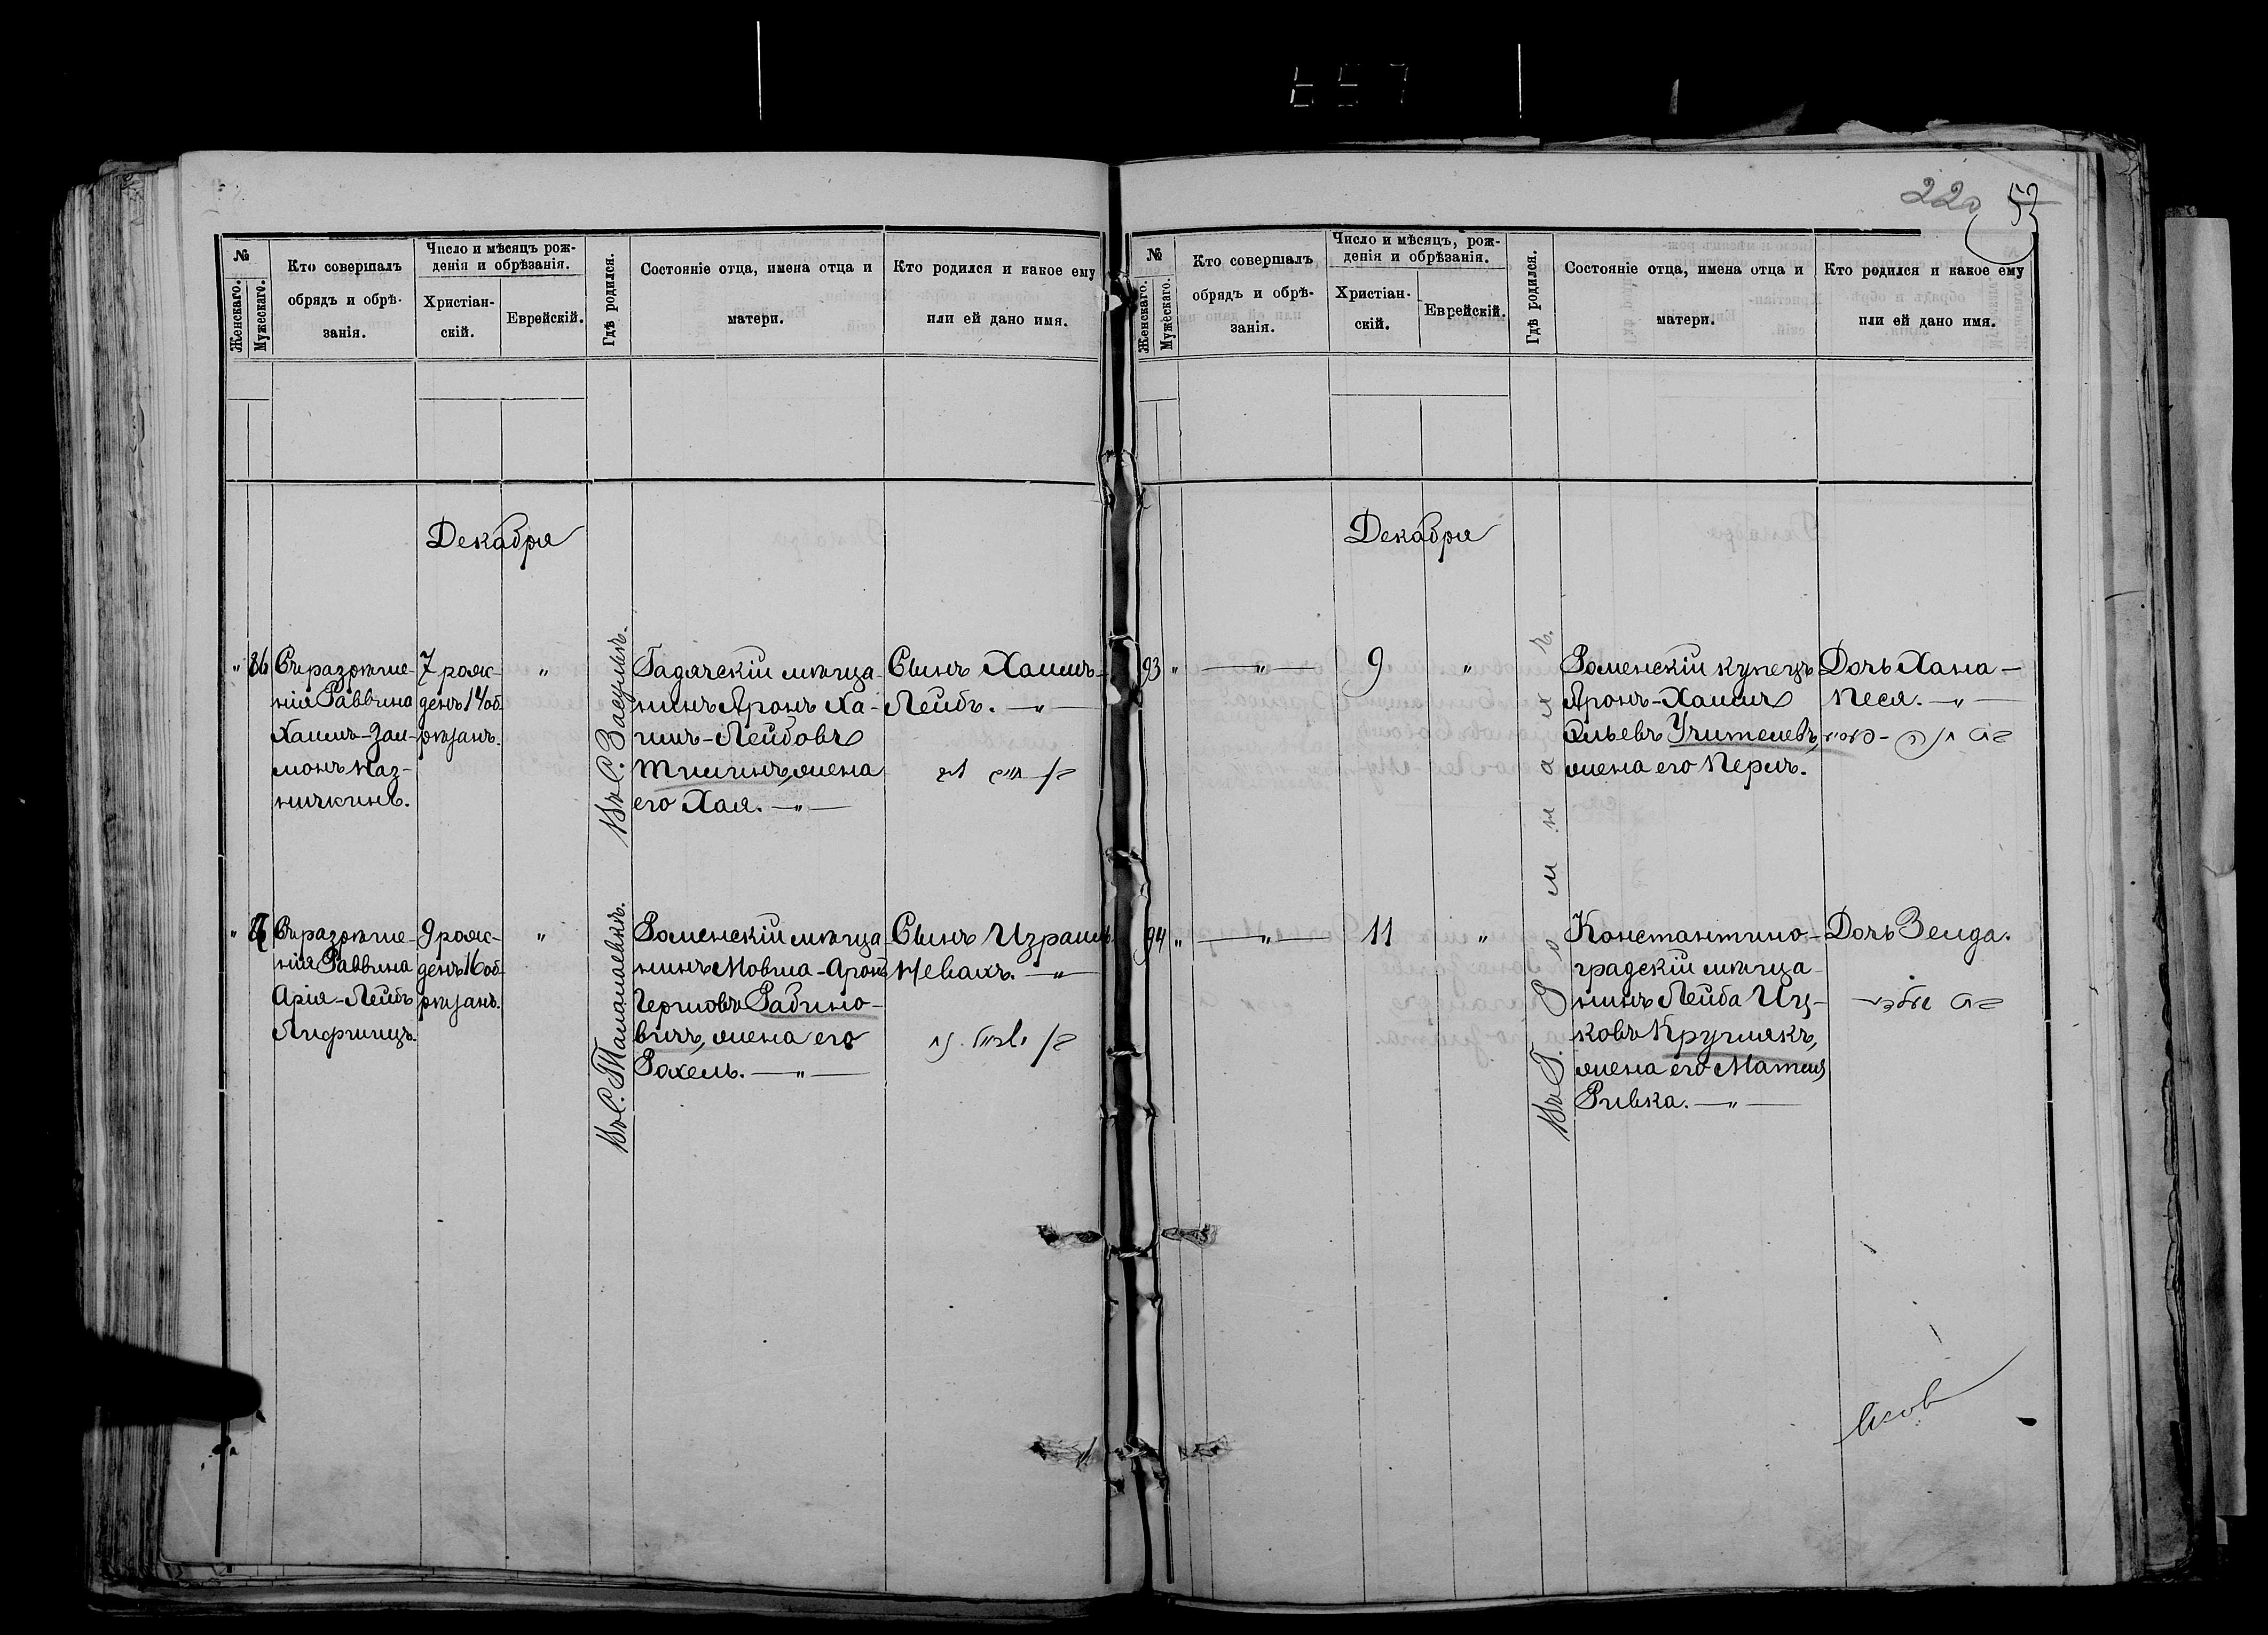 220 53
№
Женскаго.
Мужескаго.
Кто совершалъ
обрядъ и обрѣ-
занія.
Число и мѣсяцъ рож-
денія и обрѣзанія.
Христіан-
скій.
Еврейскій.
Гдѣ родился.
Состояніе отца, имена отца и
матери.
Кто родился и какое ему
или ей дано имя.
Декабря
" 86
Съ разрѣше-
нія Раввина
Хаимъ-Зал-
монъ Каз-
ничкинъ.
7 рож-
денъ 14 об-
рѣзанъ.
"
Въ С. Засулкѣ.
Гадячскій мѣща-
нинъ Аронъ Ха-
имъ-Лейбовъ
Тишинъ, жена
его Хая. — " —
Сынъ Хаимъ-
Лейбъ. — " —
" 87
Съ разрѣше-
нія Раввина
Арія-Лейбъ
Лифшицъ.
9 рож-
денъ 16 об-
рѣзанъ.
"
Въ С. Талалаевкѣ.
Роменскій мѣща-
нинъ Мовша-Аронъ
Гершовъ Рабино-
вичъ, жена его
Рахель. — " —
Сынъ Израиль
Невахъ. — " —
№
Женскаго.
Мужескаго.
Кто совершалъ
обрядъ и обрѣ-
занія.
Число и мѣсяцъ, рож-
денія и обрѣзанія.
Христіан-
скій.
Еврейскій.
Гдѣ родился.
Состояніе отца, имена отца и
матери.
Кто родился и какое ему
или ей дано имя.
Декабря
93 "
— " —
9
"
Въ Г. Ромнахъ.
Роменскій купецъ
Аронъ-Хаимъ
Эльевъ Учителевъ,
жена его Перль.
Дочь Хана-
Песя. — " —
94 "
— " —
11
"
Константино-
градскій мѣща-
нинъ Лейба Иц-
ковъ Круглякъ,
жена его Матля
Ривка. — " —
Дочь Зелда.